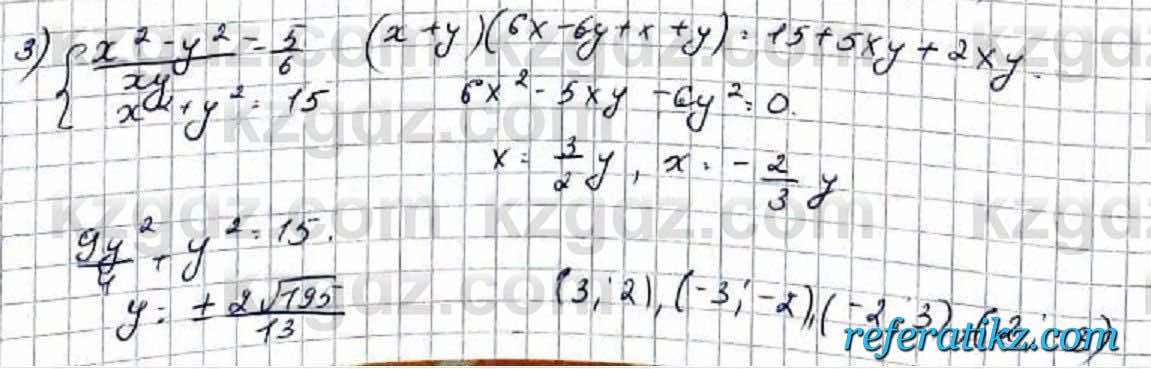 3) { (x² - y²)/xy = 5/6
x² + y² = 15
(x + y)(6x - 6y + x + y) = 15 + 5xy + 2xy.
6x² - 5xy - 6y² = 0.
x = 3/2 y, x = - 2/3 y
9y²/4 + y² = 15.
y = ± 2√195/13
(3; 2), (-3; -2), (-2; 3),
kzgdz.com
referatikz.com